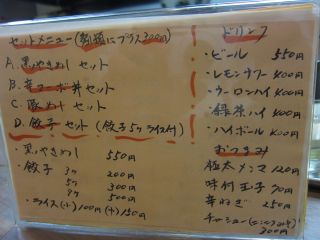 セットメニュー(麺類にプラス300円)
A. 黒やきめし セット
B. 辛マーボ丼セット
C. 豚めし セット
D. 餃子 セット (餃子5ケ ライス付)
・黒やきめし 550円
・餃子 3ケ 200円
5ケ 300円
9ケ 500円
・ライス(小)100円(大)150円
ドリンク
・ビール 550円
・レモンサワー 400円
・ウーロンハイ 400円
・緑茶ハイ 400円
・ハイボール 400円
おつまみ
極太メンマ 120円
味付玉子 90円
辛ねぎ 250円
チャーシュー
300円